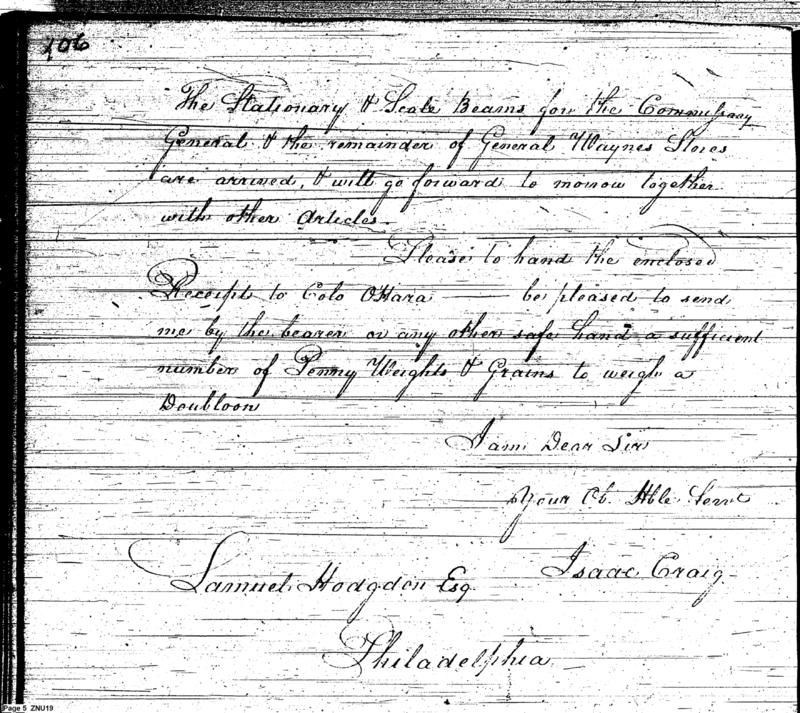 106
The Stationary & Scale Beams for the Commissary
General & the remainder of General Waynes Stores
are arrived, & will go forward to morrow together
with other Articles.
Please to hand the enclosed
Receipt to Colo OHara — be pleased to send
me by the bearer or any other safe hand a sufficient
number of Penny Weights & Grains to weigh a
Doubloon
I am Dear Sir
Your Ob. Hble Servt
Isaac Craig
Samuel Hodgdon Esq.
Philadelphia
Page 5 ZNU19